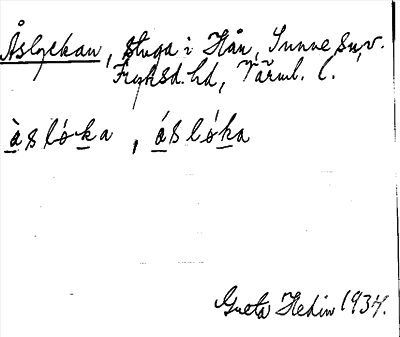 Åslyckan, stuga i Hån, Sunne sn, v.
Fryksd. hd, Värml. l.
àslóka, áslóka
Greta Hedin 1934.